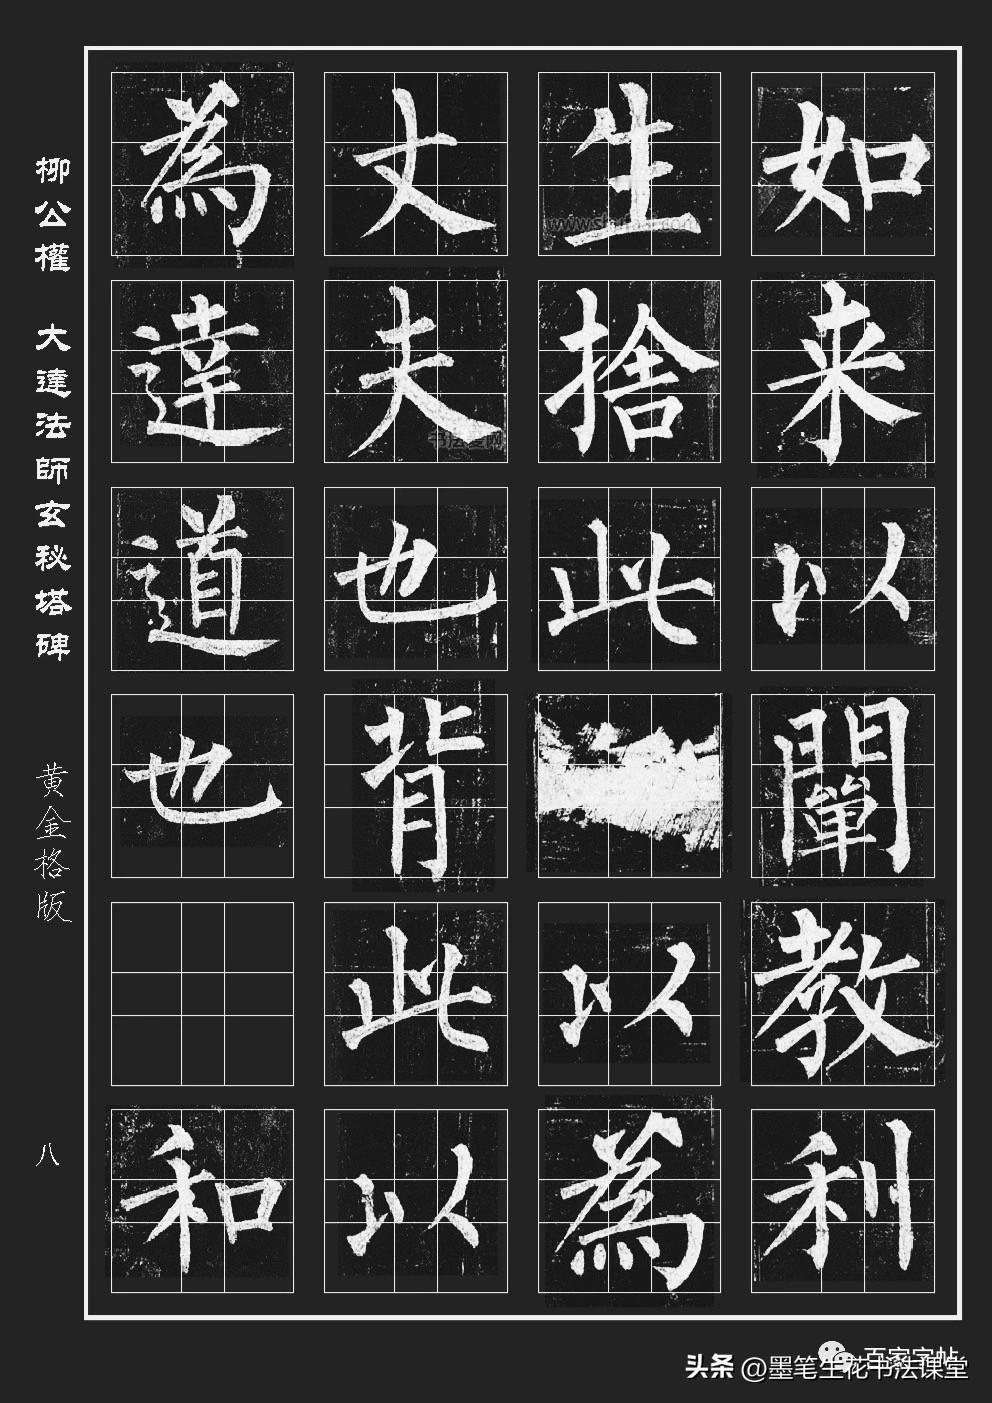 如来以闡教利
生捨此以為
丈夫也背此以
為達道也和
柳公權 大達法師玄秘塔碑
黄金格版
八
www.sh
书法爱网
百家字帖
头条 @墨笔生花书法课堂